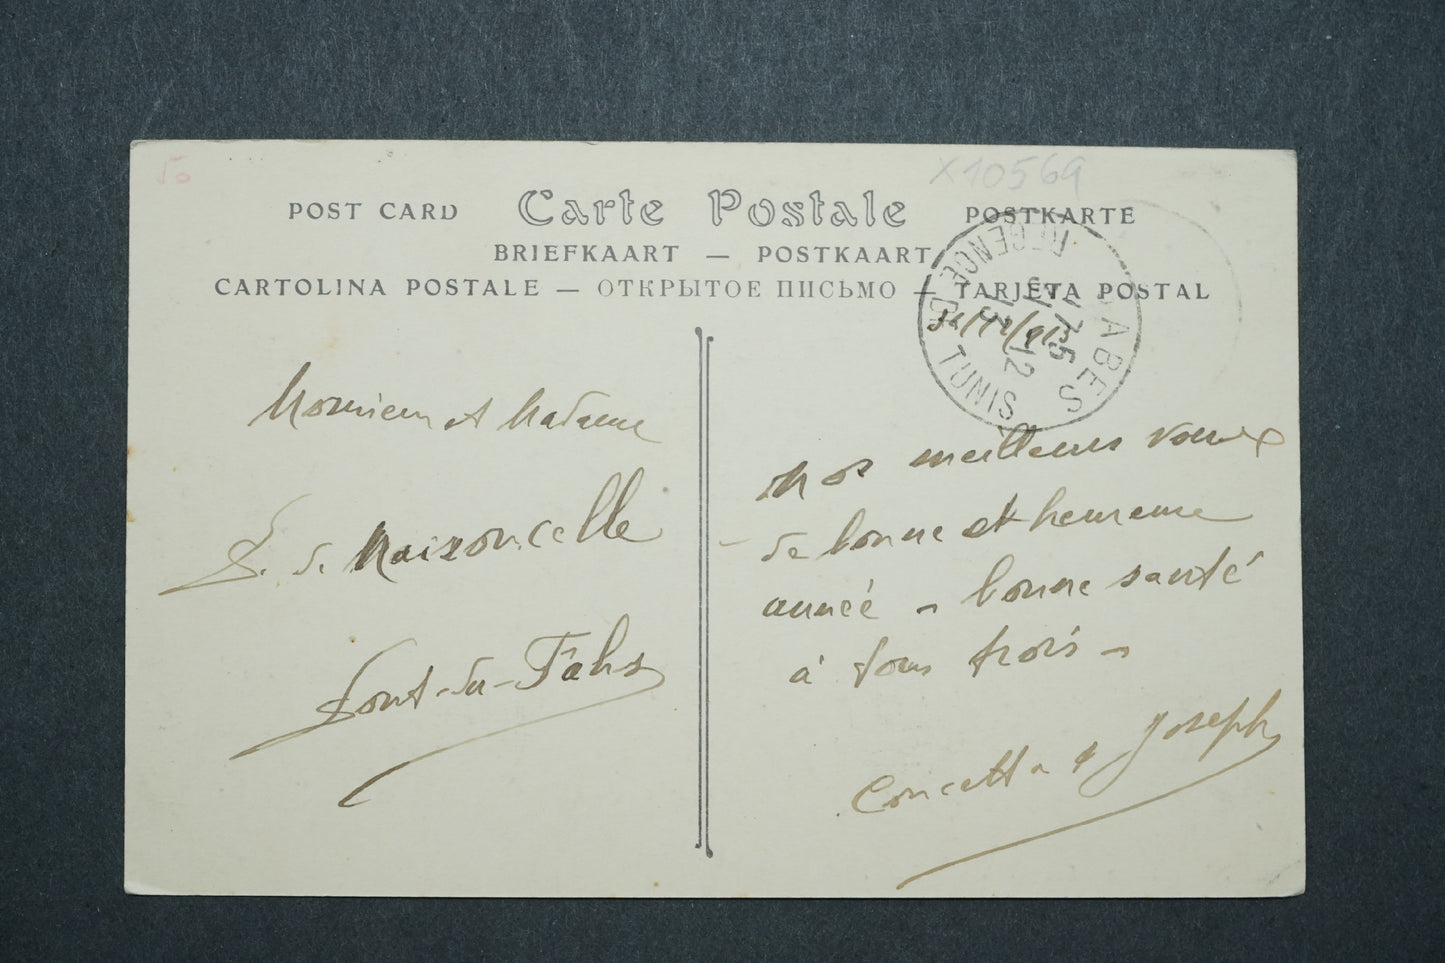 50
X10569
POST CARD Carte Postale POSTKARTE
BRIEFKAART — POSTKAART
CARTOLINA POSTALE — ОТКРЫТОЕ ПИСЬМО — TARJETA POSTAL
GABES
REGENCE DE TUNIS
17 5
12
13
Monsieur et Madame
S. de Maizoncelle
Pont-du-Fahs
Nos meilleurs vœux
de bonne et heureuse
année - bonne santé
à tous trois -
Concetta & Joseph